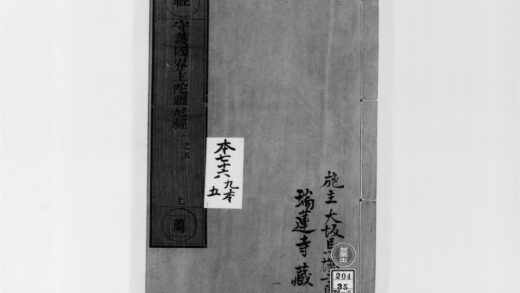 經
守護國界主陀羅尼經 一之五
本七十六
九本
五
施主 大坂
瑞蓮寺藏
204
35